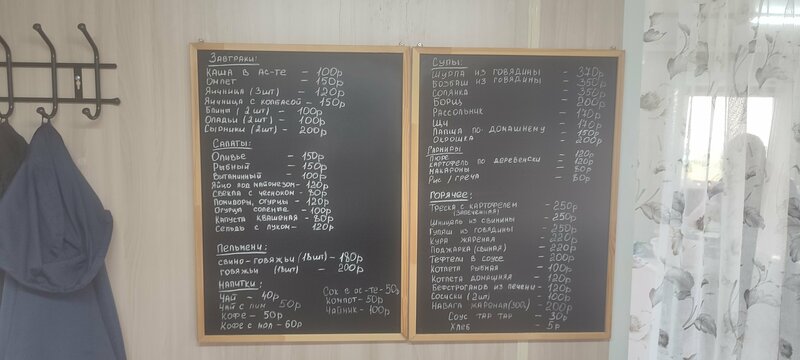 Завтраки:
Каша в ас-те - 100р
Омлет - 150р
Яичница (3шт) - 120р
Яичница с колбасой - 150р
Блины (2 шт) - 100р
Оладьи (2шт) - 100р
Сырники (2шт) - 200р
Салаты:
Оливье - 150р
Рыбный - 150р
Витаминный - 100р
Яйцо под майонезом - 120р
Свекла с чесноком - 80р
Помидоры, огурцы - 120р
Огурцы соленые - 100р
Капуста квашеная - 80р
Сельдь с луком - 120р
Пельмени:
свино-говяжьи (18шт) - 180р
говяжьи (18шт) - 200р
Напитки:
Чай - 40р
Чай с лим 50р
Кофе - 50р
Кофе с мол - 60р
Сок в ас-те - 50р
Компот - 50р
Чайник - 100р
Супы:
Шурпа из говядины - 370р
Бозбаш из говядины - 350р
Солянка - 350р
Борщ - 200р
Рассольник - 170р
Щи - 170р
Лапша по домашнему - 150р
Окрошка - 200р
Гарниры
Пюре - 120р
Картофель по деревенски - 120р
Макароны - 80р
Рис / греча - 80р
Горячее:
Треска с картофелем - 250р
(запеченная)
Шницель из свинины - 250р
Гуляш из говядины - 250р
Кура жареная - 220р
Поджарка (свиная) - 220р
Тефтели в соусе - 200р
Котлета рыбная - 100р
Котлета домашняя - 120р
Бефстроганов из печени - 120р
Сосиски (2шт) - 100р
Навага жареная (300г) - 200р
Соус тар тар - 30р
Хлеб - 5р